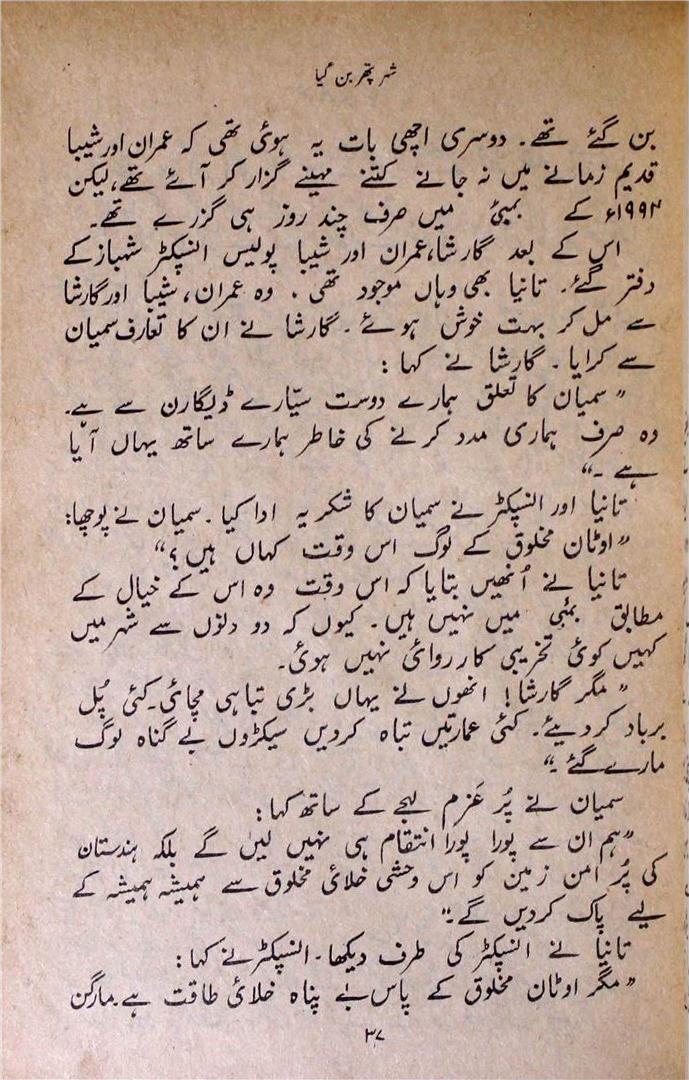 شہر پتھر بن گیا
بن گئے تھے۔ دوسری اچھی بات یہ ہوئی تھی کہ عمران اور شیبا
قدیم زمانے میں نہ جانے کتنے مہینے گزار کر آئے تھے، لیکن
۱۹۹۲ء کے بمبئی میں صرف چند روز ہی گزرے تھے۔
اس کے بعد گارشا، عمران اور شیبا پولیس انسپکٹر شہباز کے
دفتر گئے۔ تانیا بھی وہاں موجود تھی۔ وہ عمران، شیبا اور گارشا
سے مل کر بہت خوش ہوئے۔ گارشا نے ان کا تعارف سمیان
سے کرایا۔ گارشا نے کہا:
”سمیان کا تعلق ہمارے دوست سیّارے ڈیگارن سے ہے۔
وہ صرف ہماری مدد کرنے کی خاطر ہمارے ساتھ یہاں آیا
ہے۔“
تانیا اور انسپکٹر نے سمیان کا شکریہ ادا کیا۔ سمیان نے پوچھا:
”اوٹان مخلوق کے لوگ اس وقت کہاں ہیں؟“
تانیا نے اُنھیں بتایا کہ اس وقت وہ اس کے خیال کے
مطابق بمبئی میں نہیں ہیں۔ کیوں کہ دو دنوں سے شہر میں
کہیں کوئی تخریبی کارروائی نہیں ہوئی۔
”مگر گارشا! انھوں نے یہاں بڑی تباہی مچائی۔ کئی پُل
برباد کردیئے۔ کئی عمارتیں تباہ کردیں سیکڑوں بے گناہ لوگ
مارے گئے۔“
سمیان نے پُر عَزم لہجے کے ساتھ کہا:
”ہم ان سے پورا پورا انتقام ہی نہیں لیں گے بلکہ ہندستان
کی پُر امن زمین کو اس وحشی خلائی مخلوق سے ہمیشہ ہمیشہ کے
لیے پاک کردیں گے۔“
تانیا نے انسپکٹر کی طرف دیکھا۔ انسپکٹر نے کہا:
”مگر اوٹان مخلوق کے پاس بے پناہ خلائی طاقت ہے۔ مارگن
۳۷